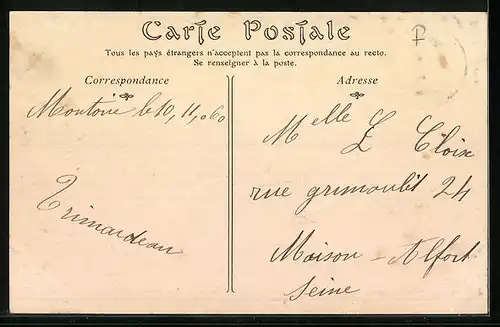 Carte Postale
Tous les pays étrangers n'acceptent pas la correspondance au recto.
Se renseigner à la poste.
Correspondance
Adresse
Montoire le 10, 11,
Trimardeau
Melle L Cloix
rue grimoulit 24
Maison - Alfort
Seine
F